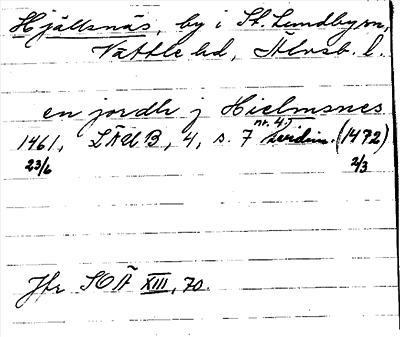 Hjällsnäs, by i St. Lundby sn,
Vättle hd, Älvsb. l.
en jordh j Hielmsnes
1461, LÄUB, 4, s. 7 nr. 4. vidim. (1472)
23/6 2/3
Jfr SOÄ XIII, 70.